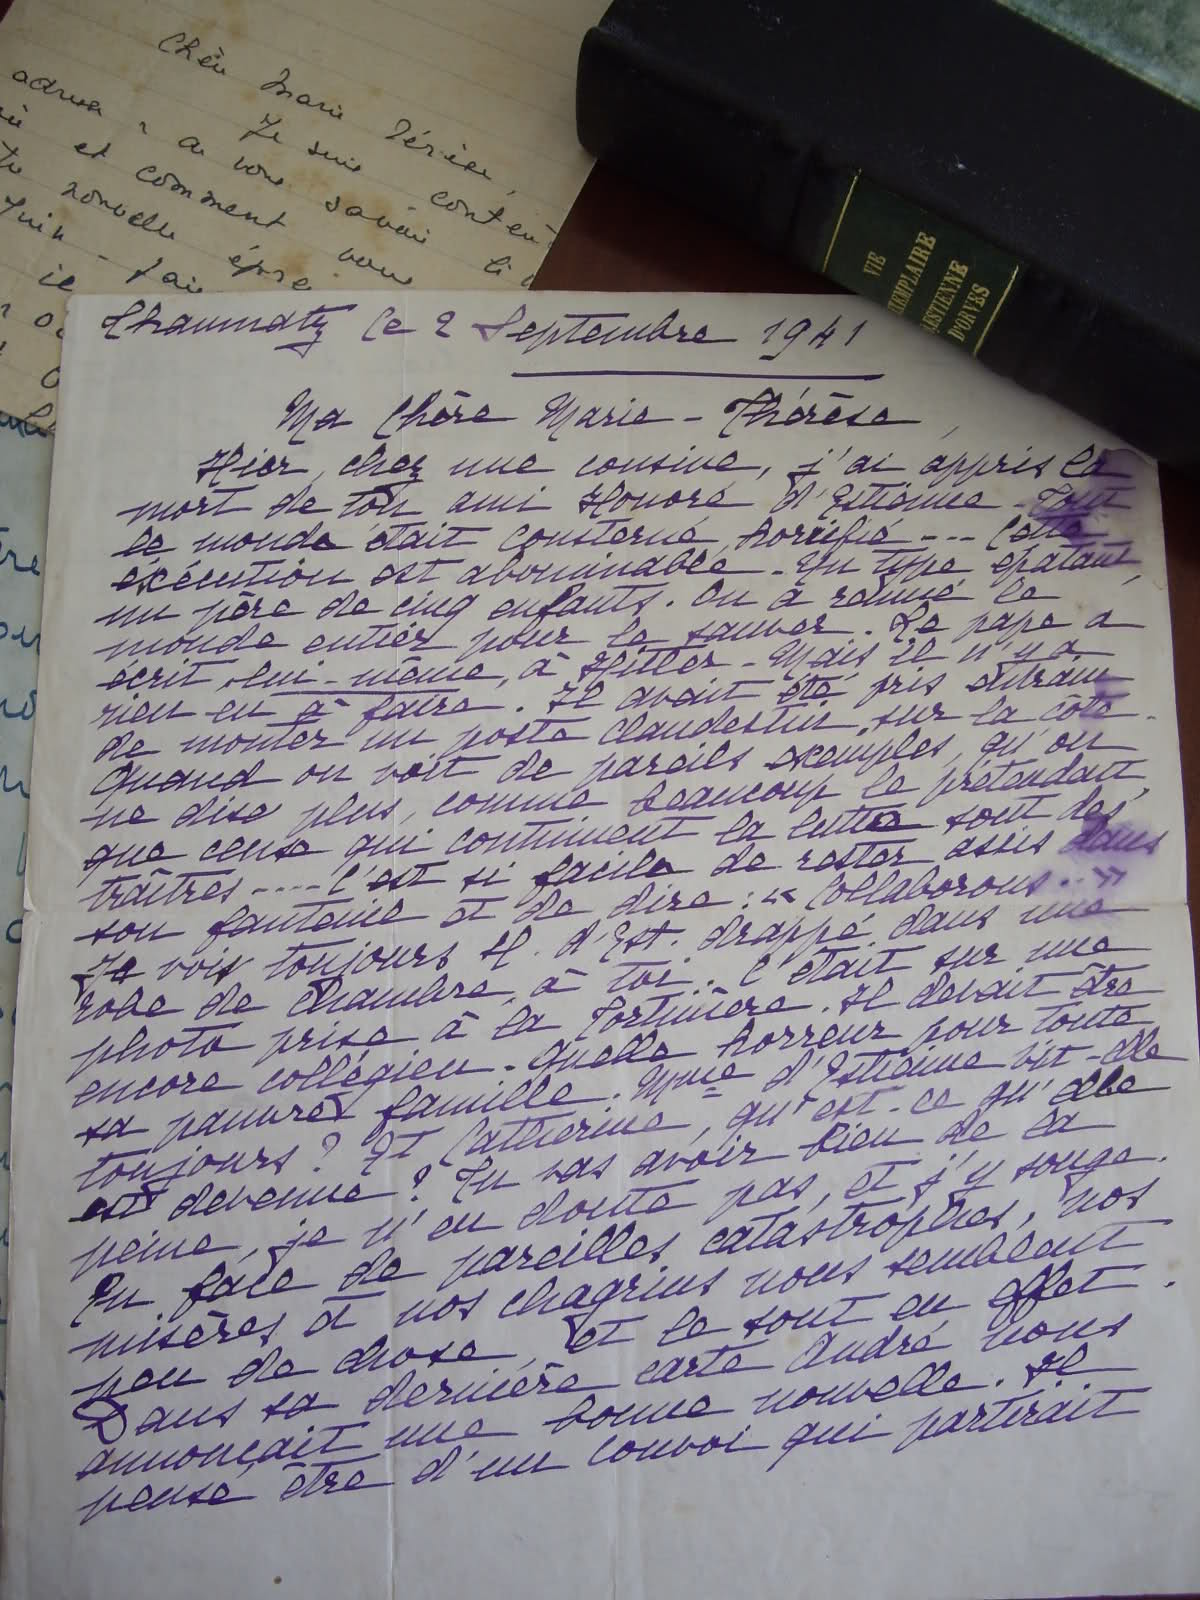 Chère Marie Térèse,
Je suis content
adresse
a vous savoir
et comment vous
nouvelle
Juin
VIE
EXEMPLAIRE
D'ESTIENNE
D'ORVES
Chaumatz le 2 Septembre 1941
Ma Chère Marie-Thérèse,
Hier, chez une cousine, j'ai appris la
mort de ton ami Honoré d'Estienne. Tout
le monde était consterné, horrifié --- Cette
éxécution est abominable. Un type épatant,
un père de cinq enfants. On a remué le
monde entier pour le sauver. Le pape a
écrit, lui-même, à Hitler - Mais il n'y a
rien eu à faire. Il avait été pris entrain
de monter un poste clandestin, sur la côte.
Quand on voit de pareils exemples, qu'on
ne dise plus, comme beaucoup le prétendait,
que ceux qui continuent la lutte sont des
traîtres ---- C'est si facile de rester assis dans
son fauteuil et de dire : « Collaborons.. »
Je vois toujours H. d'Est. drappé dans une
robe de chambre, à toi.. C'était sur une
photo prise à la Fortinière. Il devait être
encore collégien. Quelle horreur pour toute
sa pauvre famille. Mme d'Estienne vit-elle
toujours ? Et Catherine, qu'est-ce qu'elle
est devenue ? Tu vas avoir bien de la
peine, je n'en doute pas, et j'y songe.
En face de pareilles catastrophes, nos
misères et nos chagrins nous semblent
peu de chose, et le sont en effet.
Dans sa dernière carte André nous
annonçait une bonne nouvelle. Il
pense être d'un convoi qui partirait